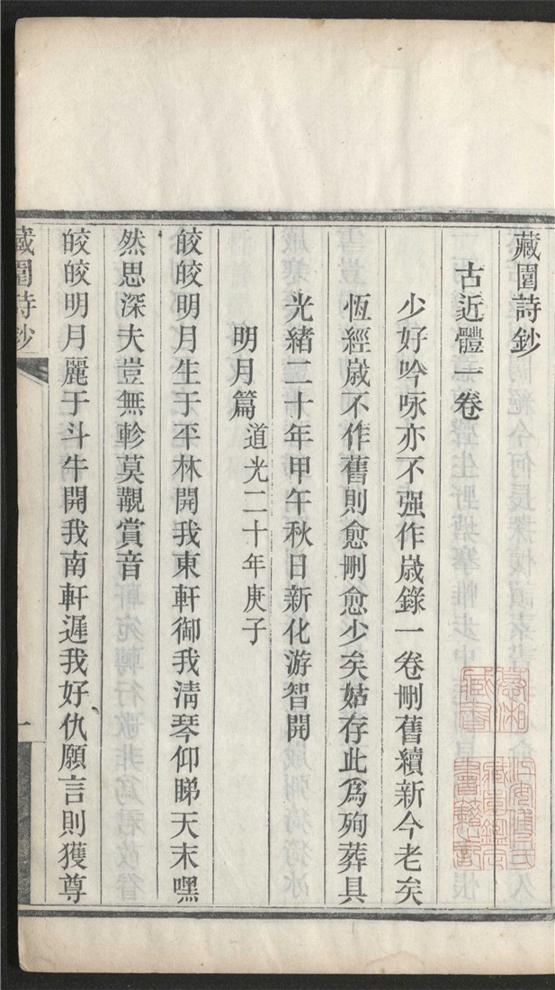 藏園詩鈔
古近體一卷
少好吟咏亦不强作歲錄一卷刪舊續新今老矣
恆經歲不作舊則愈刪愈少矣姑存此爲殉葬具
光緒二十年甲午秋日新化游智開
明月篇道光二十年庚子
皎皎明月生于平林開我東軒御我淸琴仰睇天末嘿
然思深夫豈無軫莫覯賞音
皎皎明月麗于斗牛開我南軒遲我好仇願言則獲尊
藏園詩鈔
一